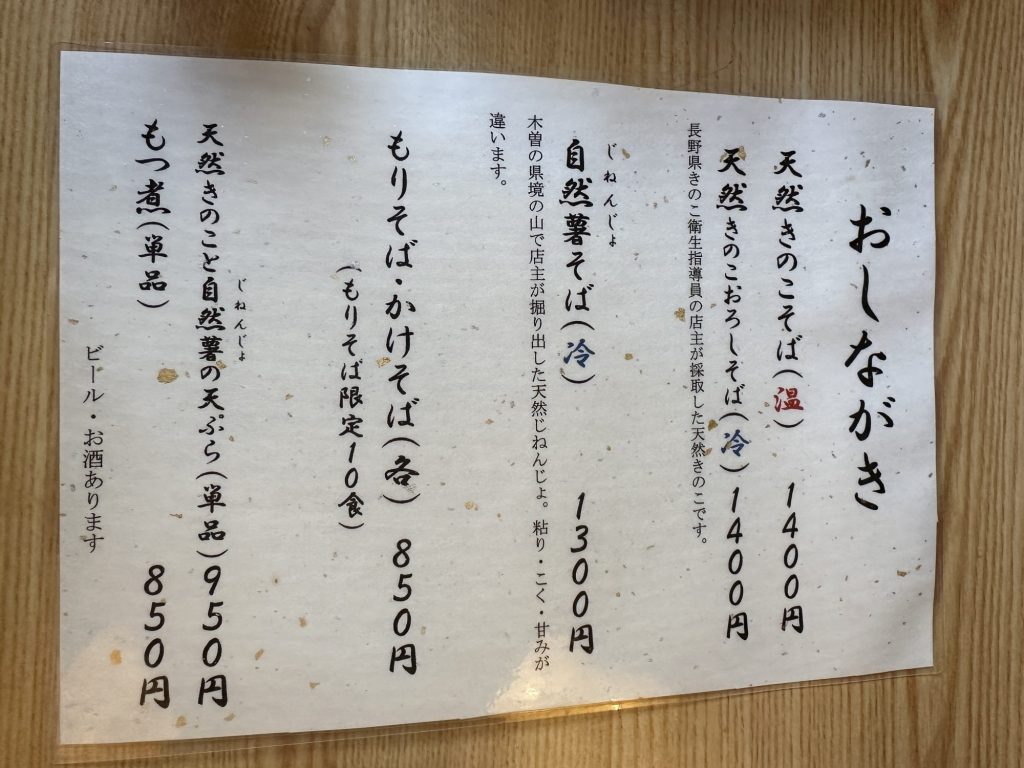 おしながき
天然きのこそば(温) 1400円
天然きのこおろしそば(冷) 1400円
長野県きのこ衛生指導員の店主が採取した天然きのこです。
じねんじょ
自然薯そば(冷) 1300円
木曽の県境の山で店主が掘り出した天然じねんじょ。粘り・こく・甘みが
違います。
もりそば・かけそば(各) 850円
(もりそば限定10食)
じねんじょ
天然きのこと自然薯の天ぷら(単品)950円
もつ煮(単品) 850円
ビール・お酒あります